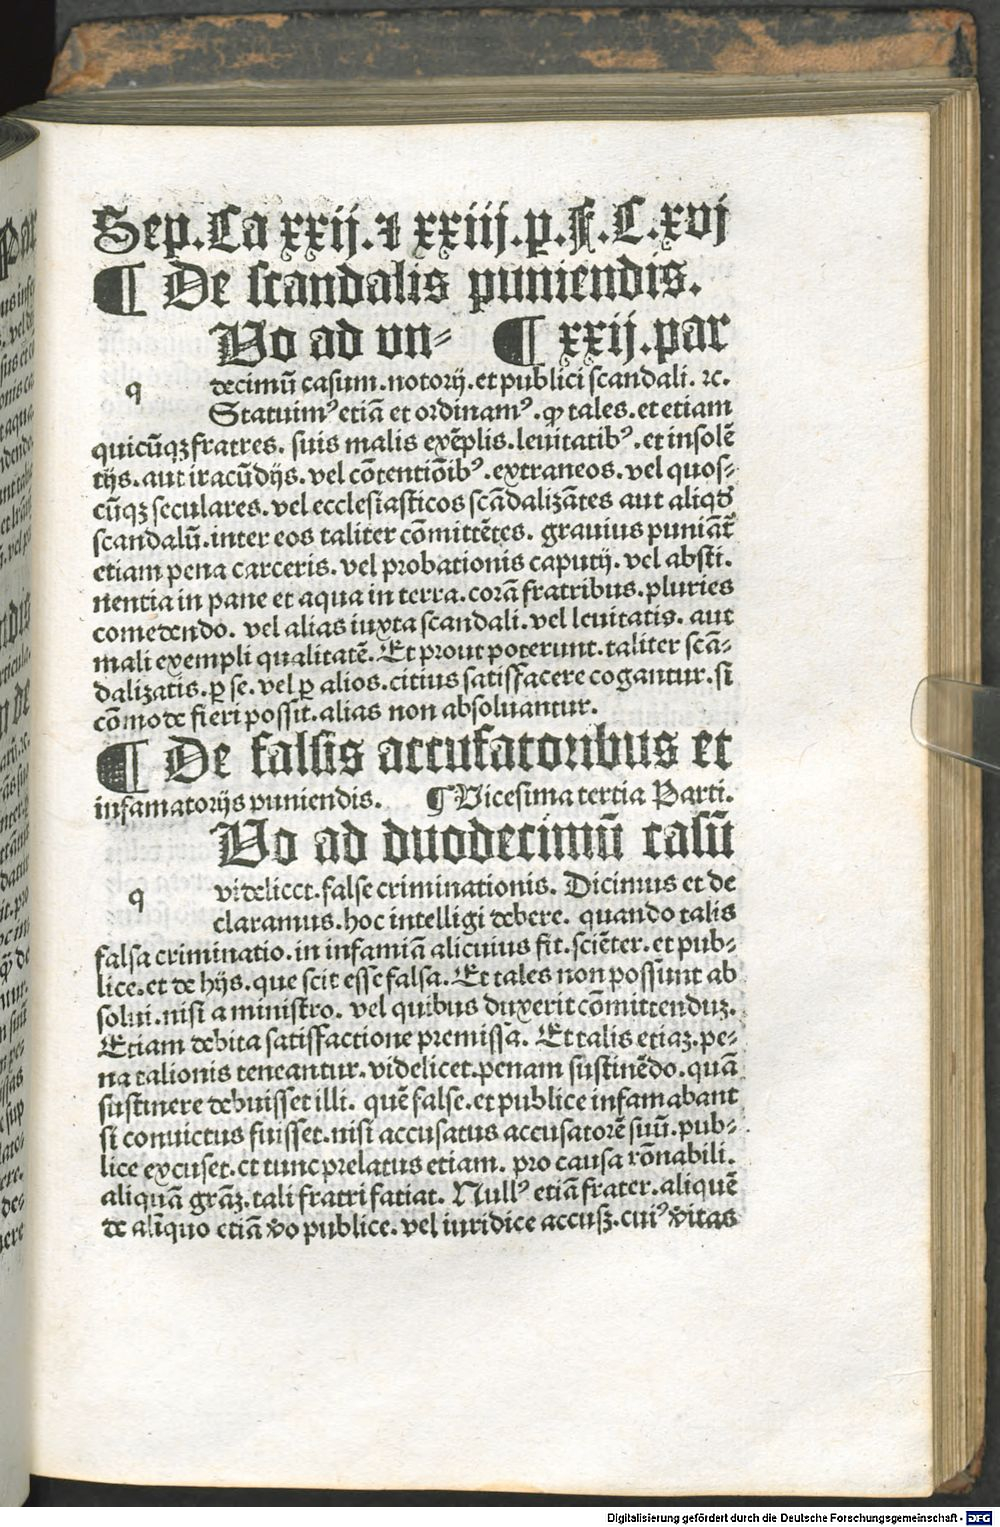 Sep. Ca xxij. ⁊ xxiij. p. f. C. xvj
¶ De scandalis puniendis.
Uo ad vn⸗ ¶ xxij. par
q decimū casum. notorij. et publici scandali. ⁊c.
Statuimꝰ etiā et ordinamꝰ. ꝙ tales. et etiam
quicūqꝫ fratres. suis malis exēplis. leuitatibꝰ. et insolē
tijs. aut iracūdijs. vel cōtentiōibꝰ. extraneos. vel quos⸗
cūqꝫ seculares. vel ecclesiasticos scādalizātes aut aliqđ
scandalū. inter eos taliter cōmittētes. grauius puniāt̄
etiam pena carceris. vel probationis caputij. vel absti.
nentia in pane et aqua in terra. corā fratribus. pluries
comedendo. vel alias iuxta scandali. vel leuitatis. aut
mali exempli qualitatē. Et prout poterunt. taliter scā⸗
dalizatis. ꝑ se. vel ꝑ alios. citius satisfacere cogantur. si
cōmode fieri possit. alias non absoluantur.
¶ De falsis accusatoribus et
infamatorijs puniendis. ¶ Vicesima tertia Parti.
Uo ad duodecimū casū
q videlicet. false criminationis. Dicimus et de
claramus. hoc intelligi debere. quando talis
falsa criminatio. in infamiā alicuius fit. sciēter. et pub⸗
lice. et de hijs. que scit esse falsa. Et tales non possunt ab
solui. nisi a ministro. vel quibus duxerit cōmittenduꝫ.
Etiam debita satisfactione premissa. Et talis etiaꝫ. pe⸗
na talionis teneantur. videlicet. penam sustinēdo. quā
sustinere debuisset illi. quē false. et publice infamabant
si conuictus fuisset. nisi accusatus accusatorē suū. pub⸗
lice excuset. et tunc prelatus etiam. pro causa rōnabili.
aliquā grāꝫ. tali fratri fatiat. Nullꝰ etiā frater. aliquē
de aliquo etiā v̄o publice. vel iuridice accusꝫ. cuiꝰ v̄itas
Digitalisierung gefördert durch die Deutsche Forschungsgemeinschaft - DFG